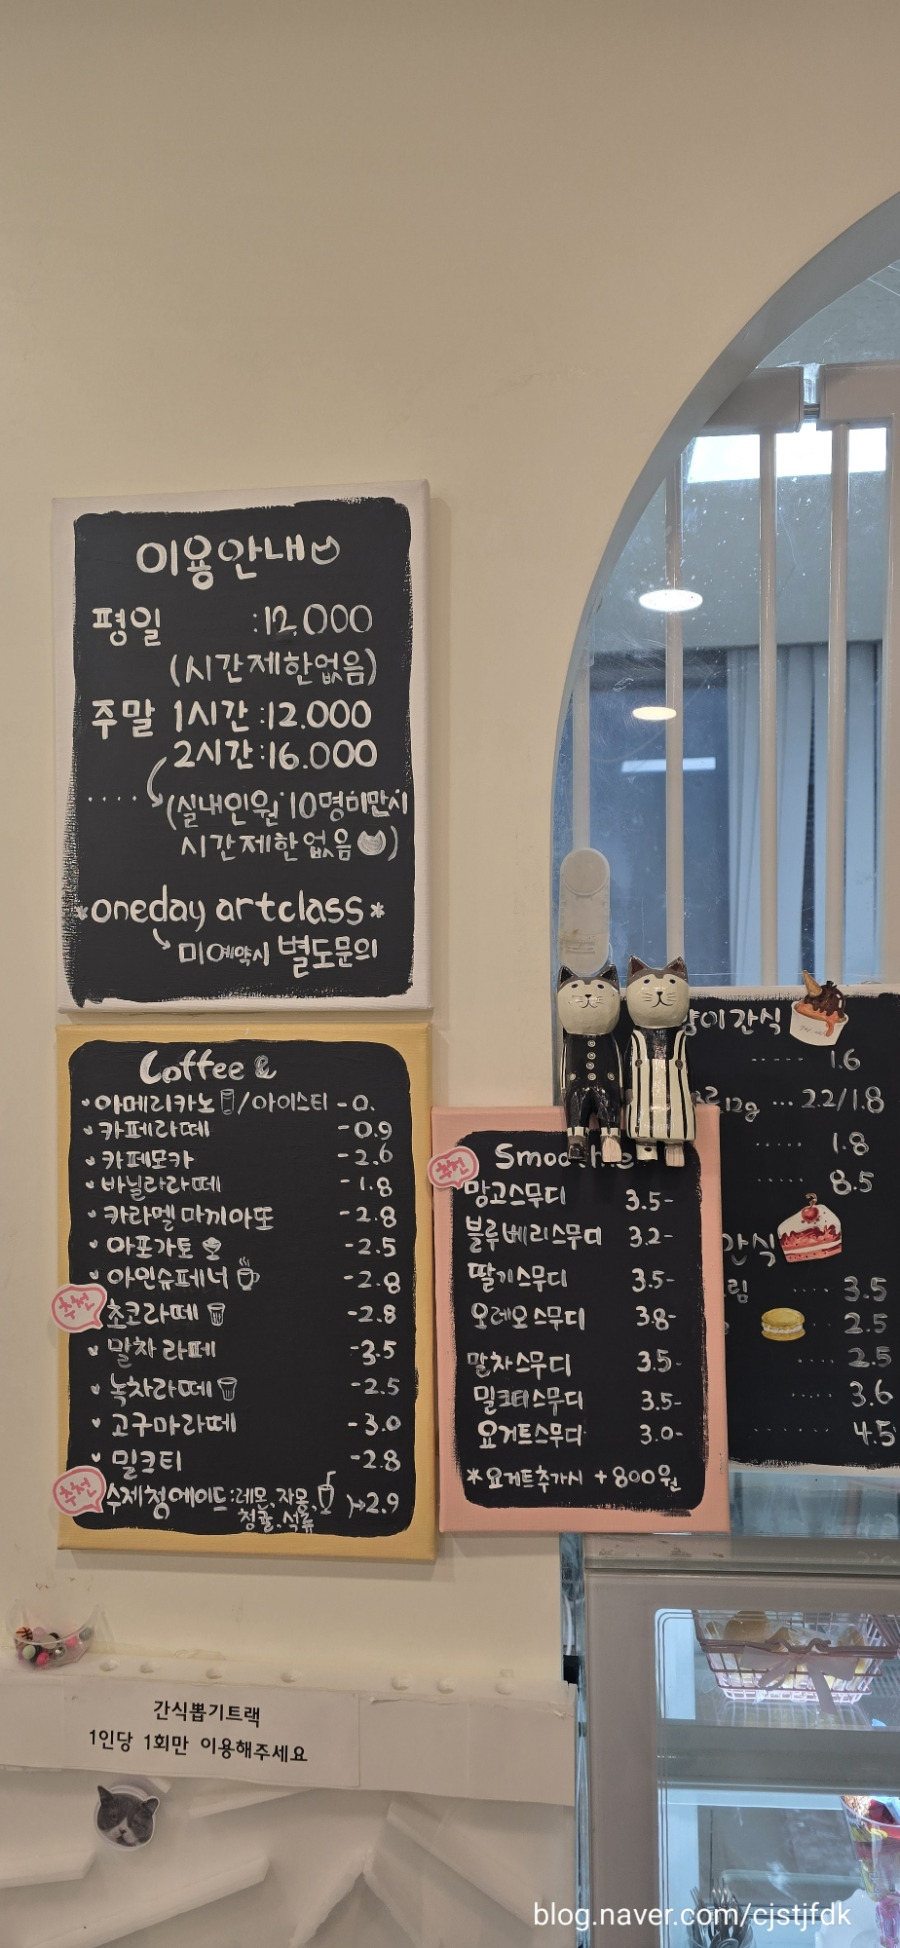 이용안내
평일 :12.000
(시간제한없음)
주말 1시간:12.000
2시간:16.000
(실내인원 10명미만시
시간제한없음)
*oneday artclass*
미예약시 별도문의
Coffee &
아메리카노/아이스티 -0.
카페라떼 -0.9
카페모카 -2.6
바닐라라떼 -1.8
카라멜마끼아또 -2.8
아포가토 -2.5
아인슈페너 -2.8
추천 초코라떼 -2.8
말차라떼 -3.5
녹차라떼 -2.5
고구마라떼 -3.0
밀크티 -2.8
추천 수제청에이드:레몬,자몽, 2.9
청귤,석류
추천
망고스무디 3.5-
블루베리스무디 3.2-
딸기스무디 3.5-
오레오스무디 3.8-
말차스무디 3.5-
밀크티스무디 3.5-
요거트스무디 3.0-
*요거트추가시 +800원
이간식
..... 1.6
12g ... 2.2/1.8
..... 1.8
..... 8.5
간식
림 .... 3.5
.... 2.5
.... 2.5
..... 3.6
....... 4.5
간식뽑기트랙
1인당 1회만 이용해주세요
blog.naver.com/cjstjfdk